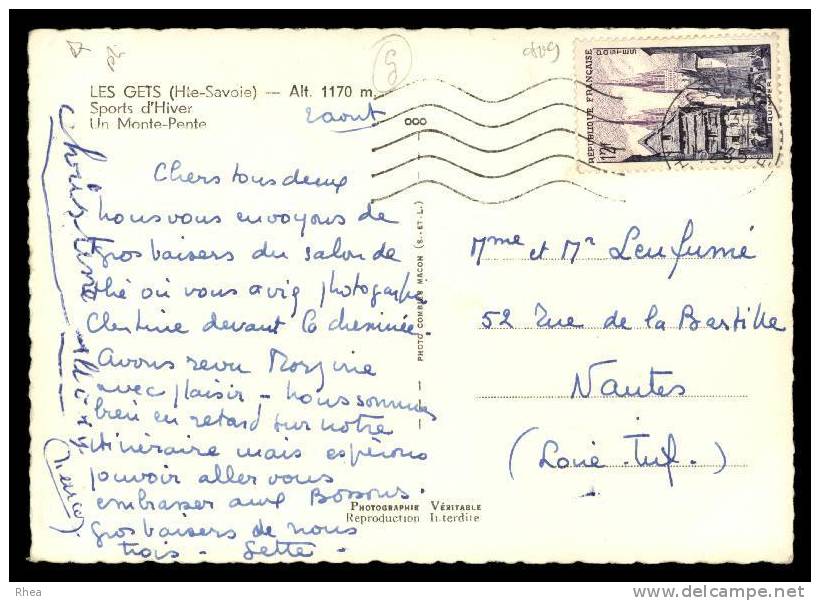 LES GETS (Hte-Savoie) — Alt. 1170 m.
Sports d'Hiver
Un Monte-Pente
2 aout
RÉPUBLIQUE FRANÇAISE
POSTES
QUIMPER
12F
Chers tous deux
nous vous envoyons de
gros baisers du salon de
thé où vous avez photographié
Christine devant la cheminée.
Avons revu Morzine
avec plaisir - nous sommes
bien en retard sur notre
itinéraire mais espérons
pouvoir aller vous
embrasser aux Bossons.
gros baisers de nous
trois - Gette
Christine
PHOTO COMBIER MACON (S.-ET-L.)
PHOTOGRAPHIE VÉRITABLE
Reproduction Interdite
Mme et Mr Leufumé
52 Rue de la Bastille
Nantes
(Loire Inf.)
Rhea
delcampe.net